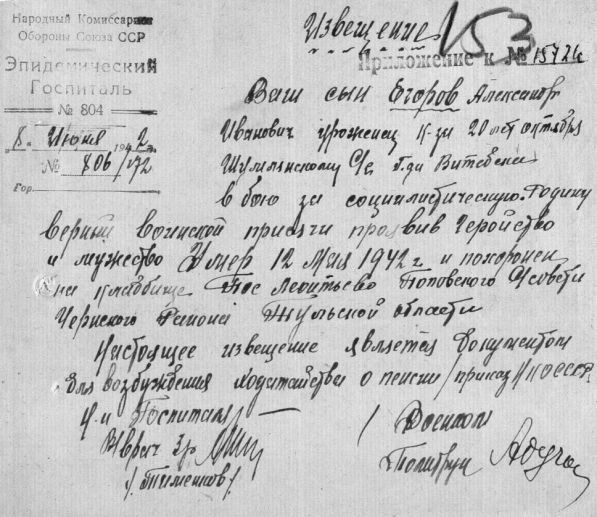 Народный Комиссариат
Обороны Союза ССР
Эпидемический
Госпиталь
№ 804
„8." Июня 1942 г.
№ 806/172
Гор.
Извещение
153
Приложение к № 1572
Ваш сын Егоров Александр
Иванович уроженец к-за 20 лет октября
с/с г. Витебска
в бою за социалистическую Родину
верный воинской присяги проявив геройство
и мужество Умер 12 Мая 1942 г и похоронен
на кладбище Пос Леонтьево Поповского С/совета
Чернского Района Тульской области
Настоящее извещение является документом
для возбуждения ходатайства о пенсии /приказ НКО СССР
Госпиталя
В/врач 3 р
/Тименков/
Военком
Политрук